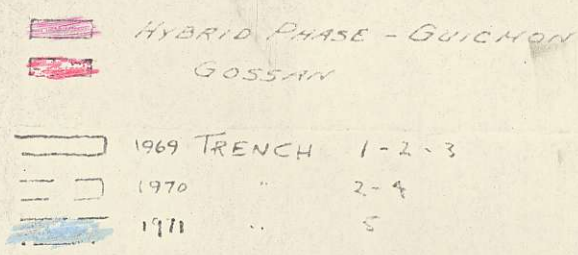 HYBRID PHASE - GUICHON
GOSSAN
1969 TRENCH 1-2-3
1970 " 2-4
1971 " 5